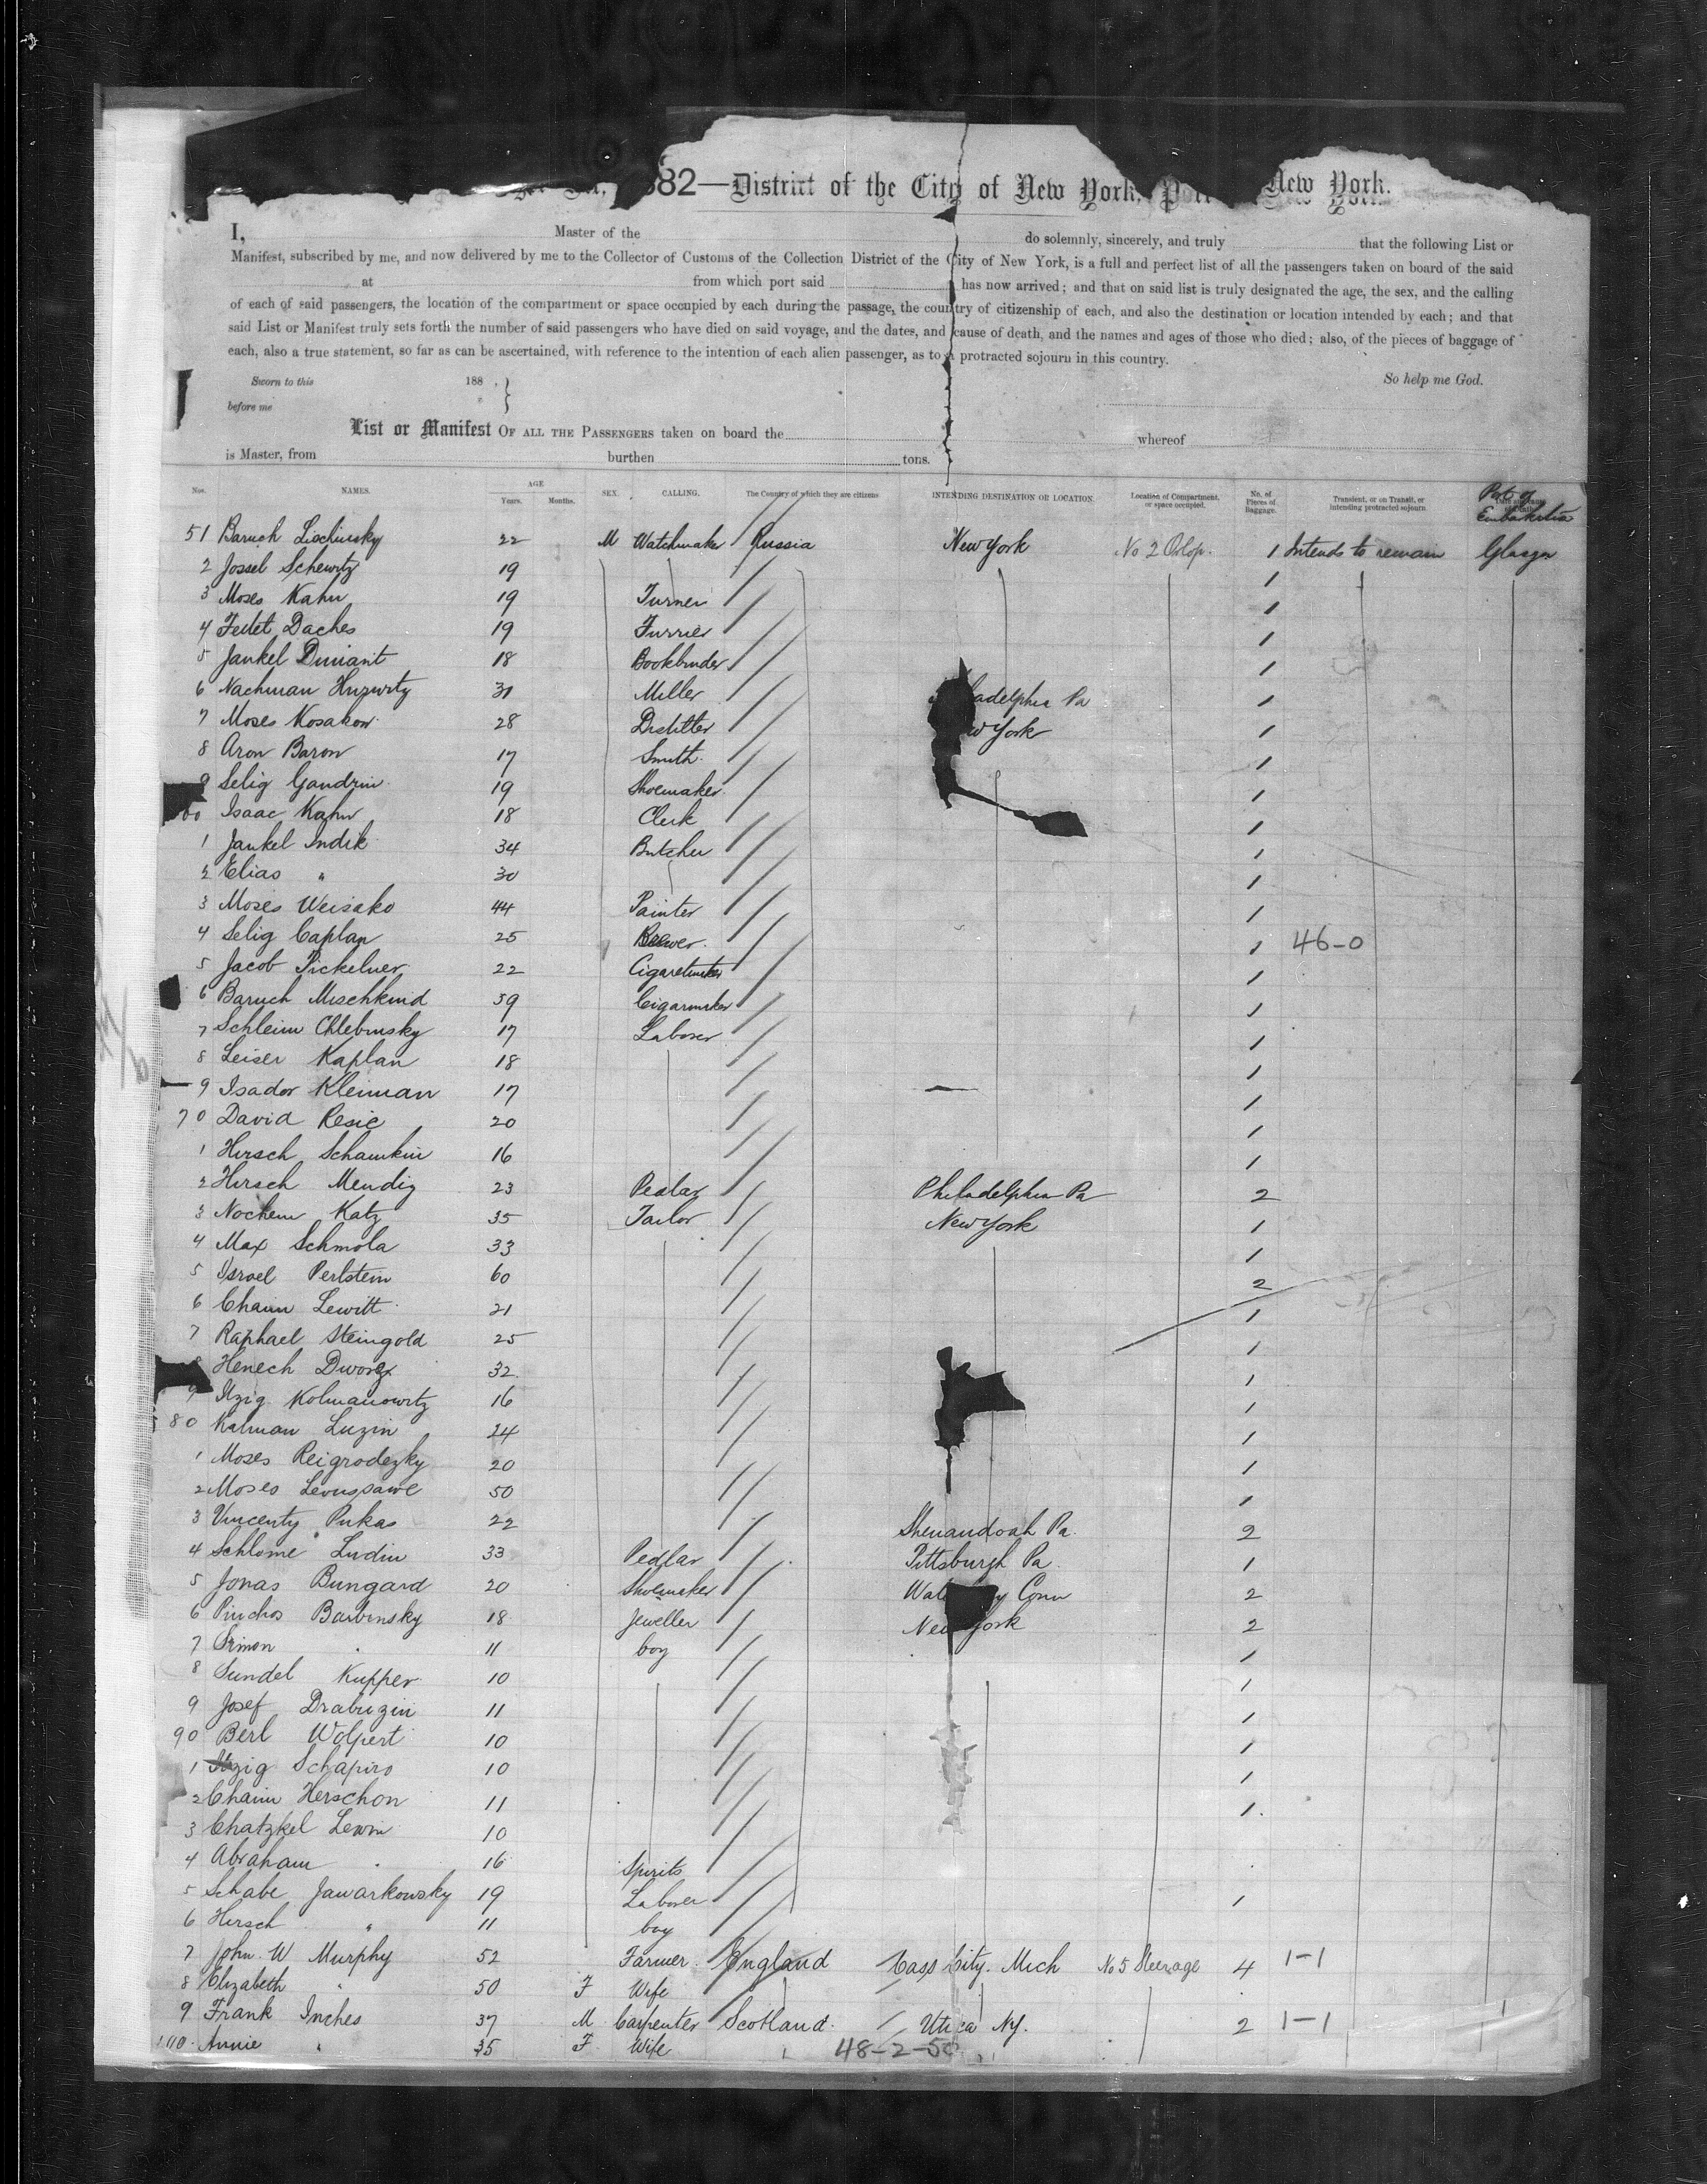 882—District of the City of New York, Port New York.
I, Master of the do solemnly, sincerely, and truly that the following List or
Manifest, subscribed by me, and now delivered by me to the Collector of Customs of the Collection District of the City of New York, is a full and perfect list of all the passengers taken on board of the said
at from which port said has now arrived; and that on said list is truly designated the age, the sex, and the calling
of each of said passengers, the location of the compartment or space occupied by each during the passage, the country of citizenship of each, and also the destination or location intended by each; and that
said List or Manifest truly sets forth the number of said passengers who have died on said voyage, and the dates, and cause of death, and the names and ages of those who died; also, of the pieces of baggage of
each, also a true statement, so far as can be ascertained, with reference to the intention of each alien passenger, as to a protracted sojourn in this country.
Sworn to this 188 , So help me God.
before me
List or Manifest OF ALL THE PASSENGERS taken on board the whereof
is Master, from burthen tons.
Nos. NAMES. AGE Years. Months. SEX. CALLING. The Country of which they are citizens. INTENDING DESTINATION OR LOCATION. Location of Compartment, or space occupied. No. of Pieces of Baggage. Transient, or on Transit, or intending protracted sojourn. Port of
51 Baruch 22 M Watchmaker Russia New York No 2 Orlop. 1 Intends to remain
2 Jossel Schewitz 19 1
3 Moses Kahn 19 Turner 1
4 Daches 19 Furrier 1
5 Jankel 18 Bookbinder 1
6 Nachman Hurwitz 31 Miller adelphia Pa 1
7 Moses Kosakow 28 Distiller w York 1
8 Aron Baron 17 Smith 1
9 Selig 19 Shoemaker 1
60 Isaac Kahn 18 Clerk 1
1 Jankel Indik 34 Butcher 1
2 Elias " 30 1
3 Moses Weisako 44 Painter 1
4 Selig Caplan 25 Brewer. 1 46-0
5 Jacob Pickelner 22 1
6 Baruch Mischkind 39 Cigarmaker 1
7 Schleim Chlebinsky 17 Laborer 1
8 Leiser Kaplan 18 1
9 Isador Kleiman 17 1
70 David Resic 20 1
1 Hirsch Schamkin 16 1
2 Hirsch Mendig 23 Pedlar Philadelphia Pa 2
3 Nochem Katz 35 Tailor New York 1
4 Max Schmola 33 1
5 Israel Perlstein 60 2
6 Chaim Lewitt 21 1
7 Raphael Steingold 25 1
Henech 32 1
9 Itzig Kolmanowitz 16 1
80 Kalman Luzin 24 1
1 Moses Reigrodezky 20 1
2 Moses 50 1
3 Vincenty Pukas 22 Shenandoah Pa. 2
4 Schlome Ludin 33 Pedlar Pittsburgh Pa. 1
5 Jonas Bungard 20 Shoemaker Wat y Conn 2
6 Pinchos Barbinsky 18 Jeweller New York 2
7 Simon " 11 boy 1
8 Sundel Kupper 10 1
9 Josef 11 1
90 Berl Wolpert 10 1
1 Itzig Schapiro 10 1
2 Chaim Herschon 11 1
3 Chatzkel Lewin 10
4 Abraham " 16 Spirits
5 Schabe Jawarkowsky 19 Laborer 1
6 Hirsch " 11 boy
7 John W Murphy 52 Farmer England Cass City. Mich No 5 Steerage 4 1-1
8 Elizabeth " 50 F Wife
9 Frank Inches 37 M Carpenter Scotland Utica NY. 2 1-1
100 Annie " 35 F Wife 48-2-50